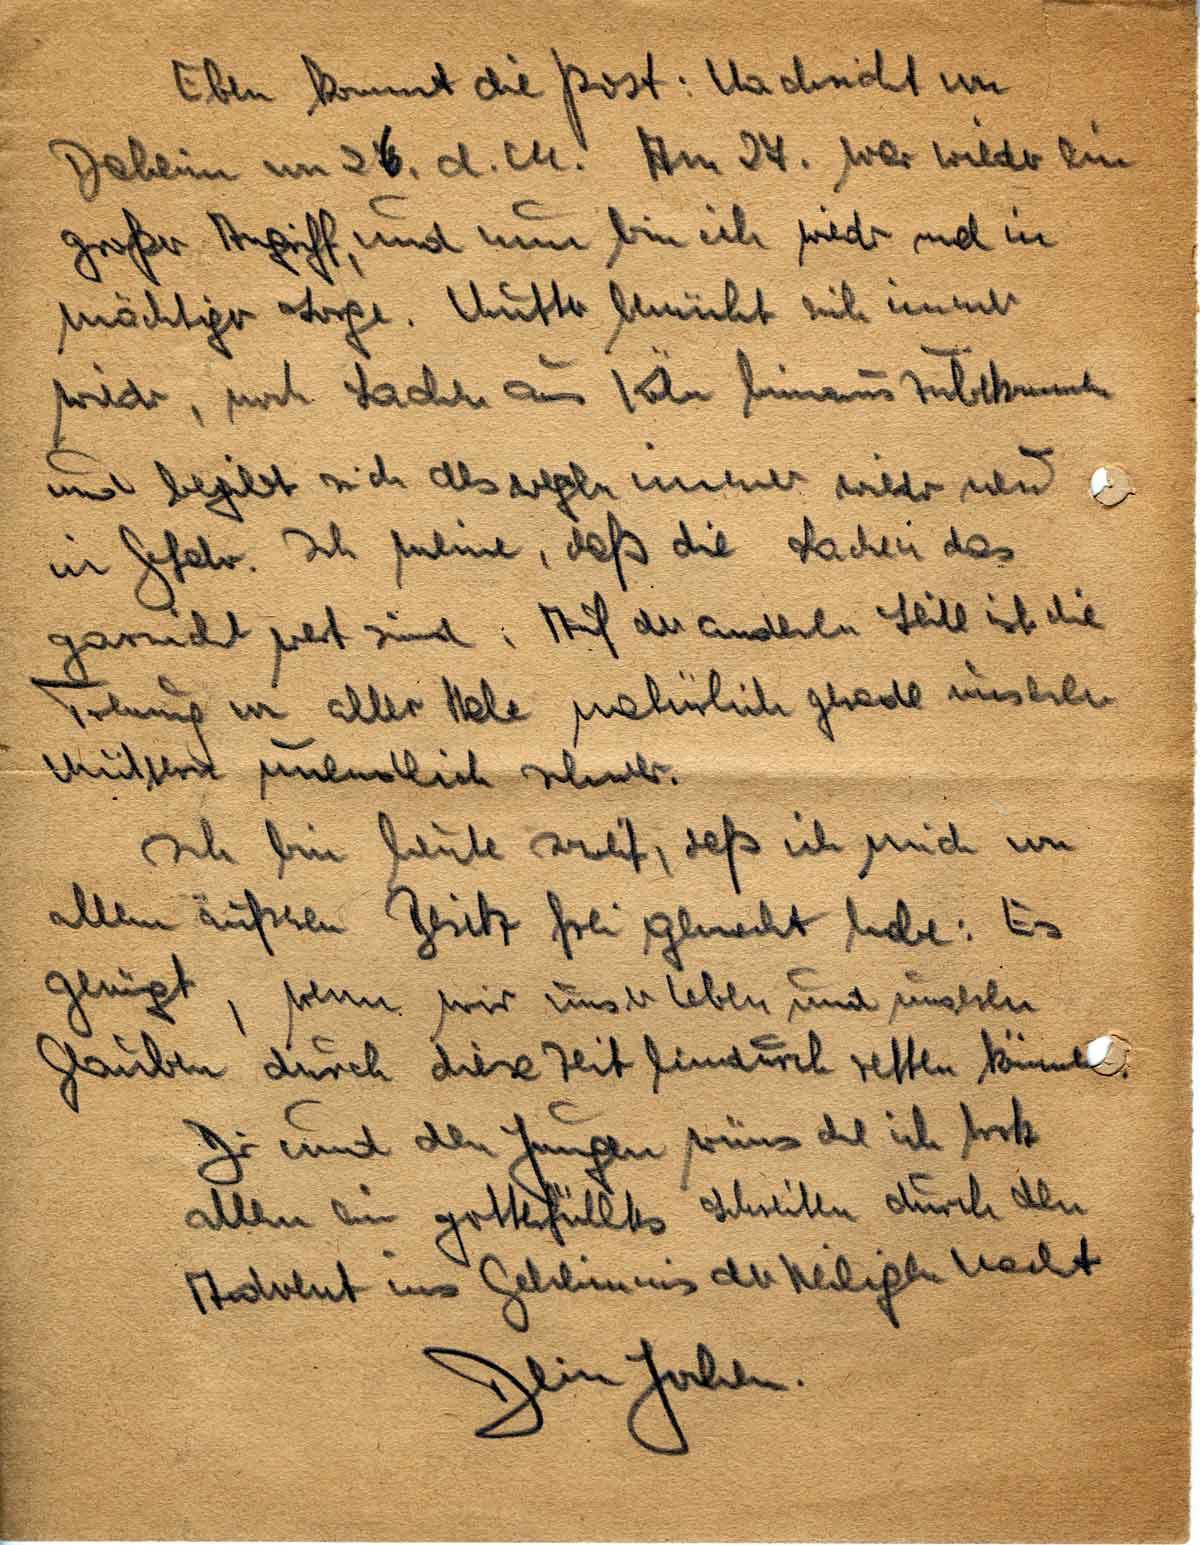 Eben kommt die Post: Nachricht von
Daheim vom 26. d. M. Am 24. war wieder ein
großer Angriff, und nun bin ich wieder und in
mächtiger Sorge. Mutter bemüht sich immer
wieder, noch Sachen aus Köln hinauszubekommen
und begibt sich deswegen immer wieder neu
in Gefahr. Ich meine, daß die Sachen das
garnicht wert sind. Auf der anderen Seite ist die
Trennung von aller Habe natürlich gerade unseren
Müttern unendlich schwer.
Ich bin heute soweit, daß ich mich von
allem äußeren Besitz frei gemacht habe: Es
genügt, wenn wir unser Leben und unseren
Glauben durch diese Zeit hindurch retten können.
Dir und den Jungen wünsche ich trotz
allem ein gotterfülltes Schreiten durch den
Advent ins Geheimnis der Heiligen Nacht
Dein Jochen.